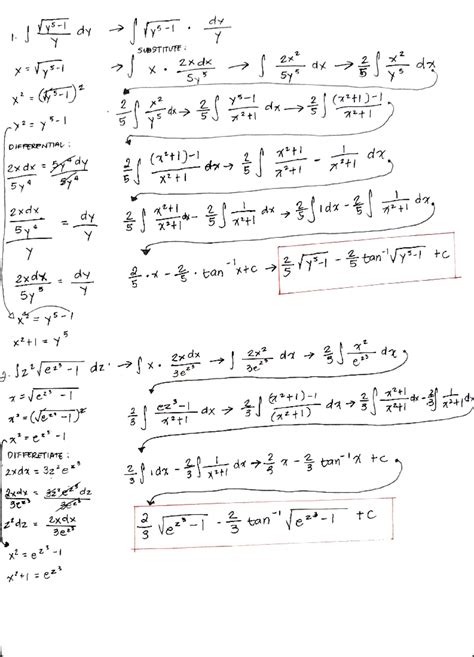 1. ∫ √(y⁵-1)/y dy → ∫ √(y⁵-1) · dy/y
SUBSTITUTE:
x = √(y⁵-1) → ∫ x · 2xdx/5y⁵ → ∫ 2x²/5y⁵ dx → 2/5 ∫ x²/y⁵ dx
x² = (√(y⁵-1))²
2/5 ∫ x²/y⁵ dx → 2/5 ∫ y⁵-1/x²+1 dx → 2/5 ∫ (x²+1)-1/x²+1
x² = y⁵-1
DIFFERENTIAL:
2xdx/5y⁴ = 5y⁴dy/5y⁴
2/5 ∫ (x²+1)-1/x²+1 dx → 2/5 ∫ x²+1/x²+1 - 1/x²+1 dx
2xdx/5y⁴/y = dy/y
2/5 ∫ x²+1/x²+1 dx - 2/5 ∫ 1/x²+1 dx → 2/5 ∫ 1dx - 2/5 ∫ 1/x²+1 dx
2xdx/5y⁵ = dy/y
2/5 · x - 2/5 · tan⁻¹x+c → 2/5 √(y⁵-1) - 2/5 tan⁻¹√(y⁵-1) + C
x² = y⁵-1
x²+1 = y⁵
2. ∫ z² √(e^z³-1) dz → ∫ x · 2xdx/3e^z³ → ∫ 2x²/3e^z³ dx → 2/3 ∫ x²/e^z³ dx
x = √(e^z³-1)
x² = (√(e^z³-1))²
2/3 ∫ e^z³-1/x²+1 dx → 2/3 ∫ (x²+1)-1/(x²+1) dx → 2/3 ∫ x²+1/x²+1 dx - 2/3 ∫ 1/x²+1 dx
x² = e^z³-1
DIFFERETIATE:
2xdx = 3z²e^z³
2/3 ∫ 1dx - 2/3 ∫ 1/x²+1 dx → 2/3 x - 2/3 tan⁻¹x + c
2xdx/3e^z³ = 3z²e^z³dz/3e^z³
z²dz = 2xdx/3e^z³
2/3 √(e^z³-1) - 2/3 tan⁻¹ √(e^z³-1) + C
x² = e^z³-1
x²+1 = e^z³